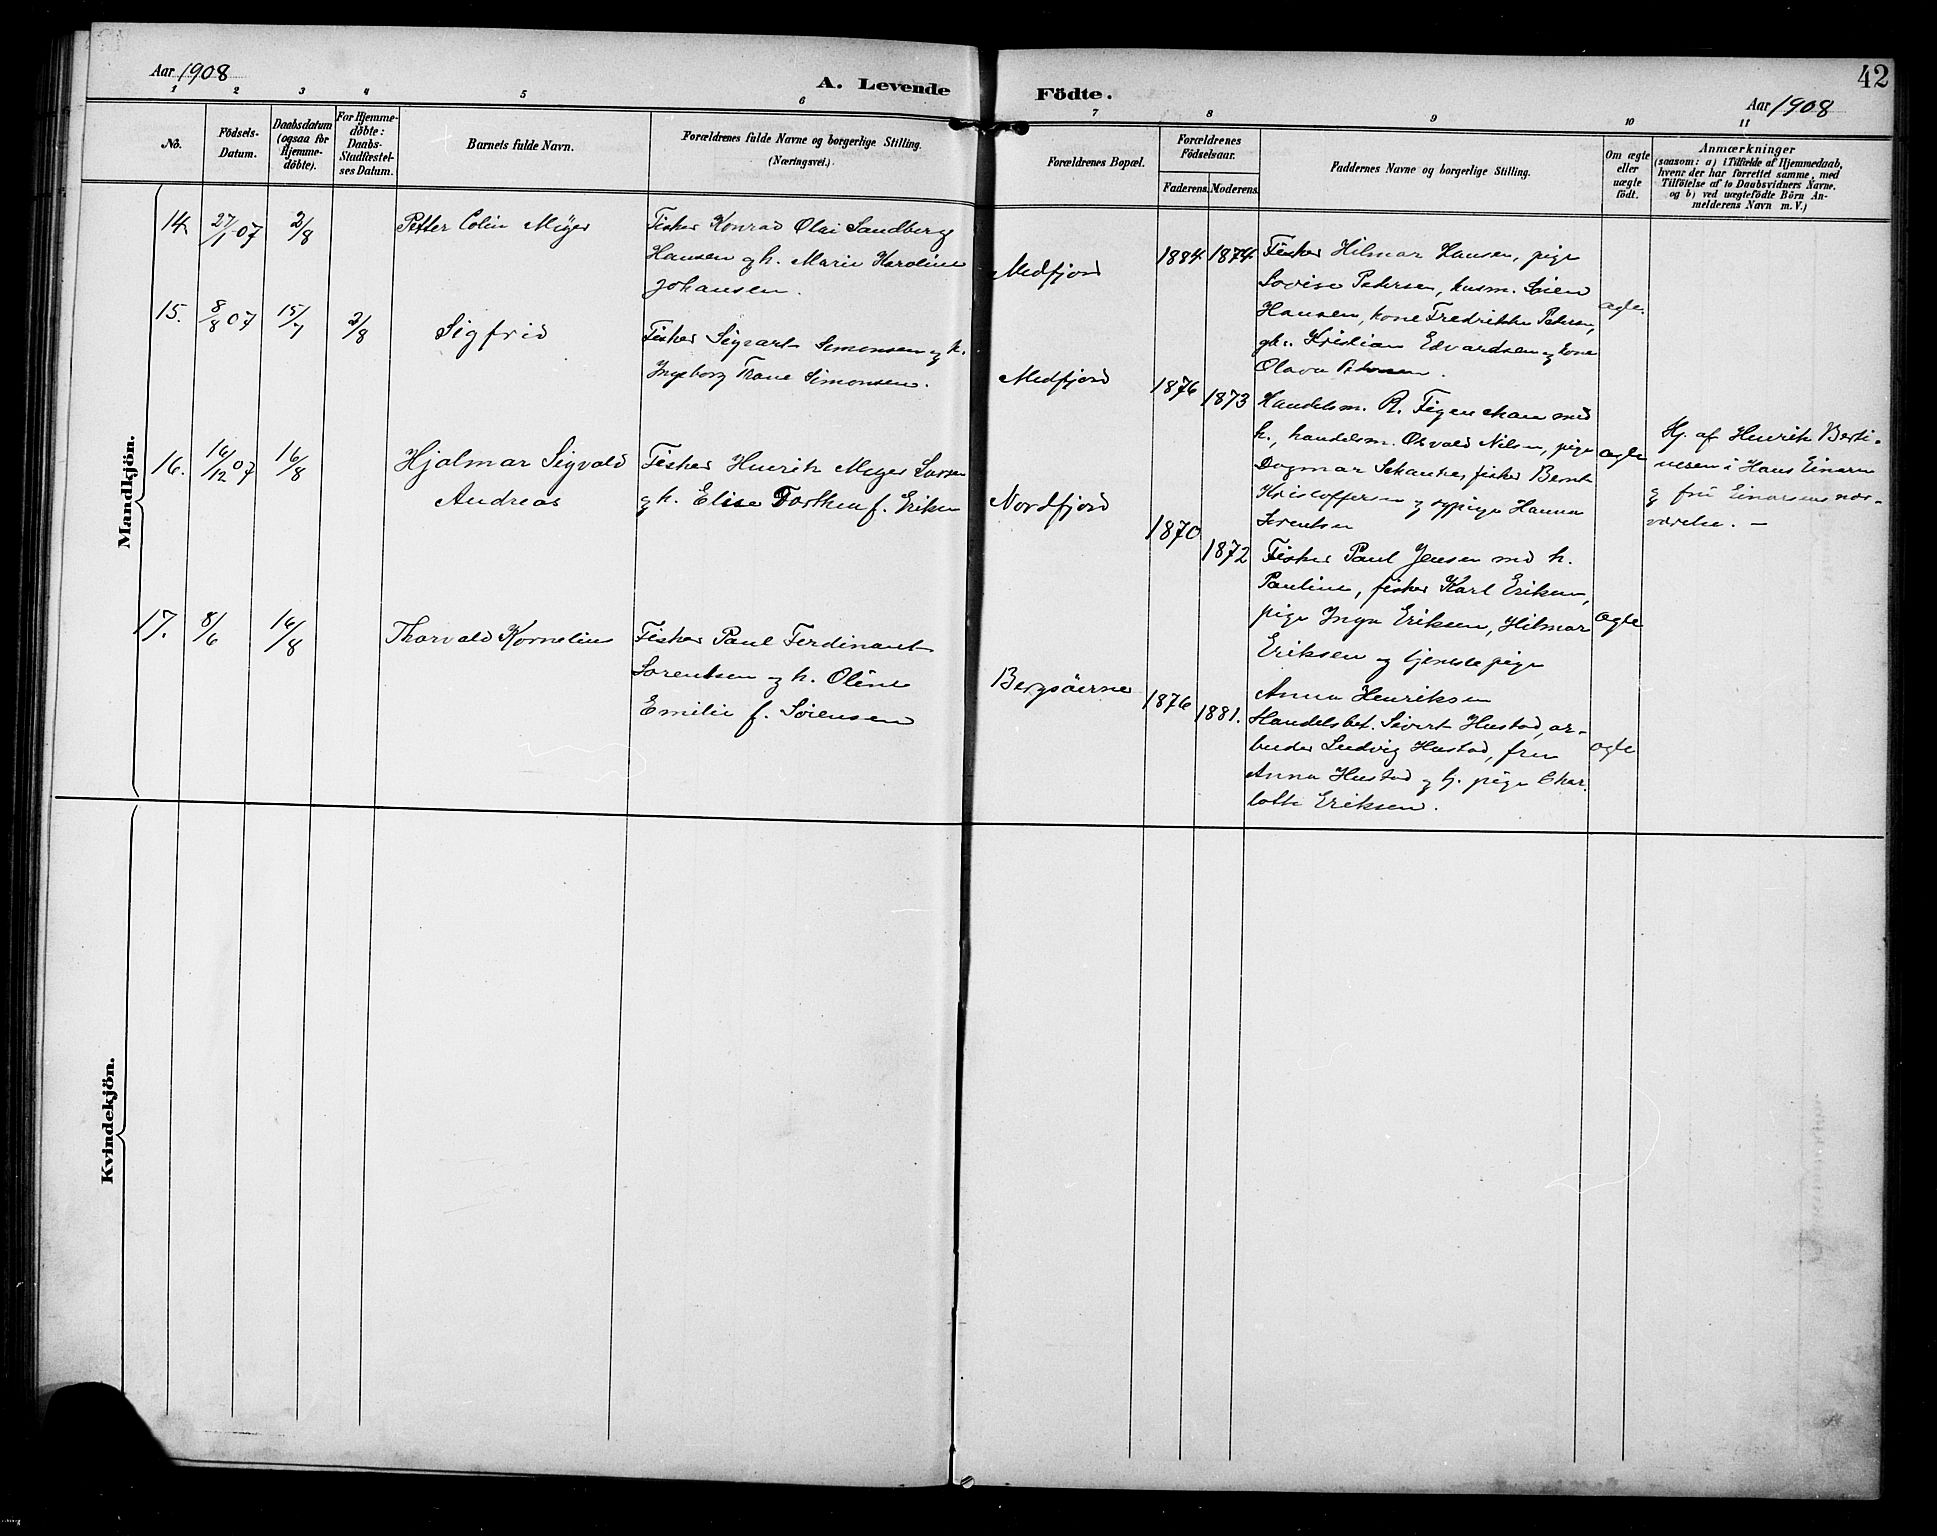 Aar 1908
A. Levende Födte.
42
Aar 1908
1 2 3 4 5 6 7 8 9 10 11
No.
Födsels-
Datum.
Daabsdatum
(ogsaa for
Hjemme-
döbte).
For Hjemme-
döbte:
Daabs-
Stadfæstel-
ses Datum.
Barnets fulde Navn.
Forældrenes fulde Navne og borgerlige Stilling.
(Næringsvei.)
Forældrenes Bopæl.
Forældrenes
Födselsaar.
Faderens. Moderens.
Faddernes Navne og borgerlige Stilling.
Om ægte
eller
uægte
födt.
Anmærkninger
(saasom: a) i Tilfælde af Hjemmedaab,
hvem der har forrettet samme, med
Tilföielse af to Daabsvidners Navne,
og b) ved uægtefödte Börn An-
melderens Navn m. V.)
Mandkjön.
14. 27/1 07 2/8 Petter Colin Meyer
Fisker Konrad Olai Sandberg
Hansen og h. Marie Karoline
Johansen.
Medfjord 1884 1874
Fisker Hilmar Hansen, pige
Lovise Petersen, husm. Søren
Hansen, kone Fredrikke Petersen,
gb. Kristian Edvardsen og kone
Olava Petersen.
ægte.
15. 8/8 07 15/7 2/8 Sigfrid
Fisker Sigvart Simonsen og h.
Ingeborg Trane Simonsen.
Medfjord 1876 1873
Handelsm. R. Figenschau med
h., handelsm. Osvald Nilsen, pige
Dagmar Schanke, fisker Bernt
Kristoffersen og sypige Hanna
Sorentsen
ægte
Hj. af Henrik Berti-
nesen i Hans Einarsen
og fru Einarsens nær-
værelse. –
16. 16/12 07 16/8 Hjalmar Sigvald
Andreas
Fisker Henrik Meyer Larsen
og h. Elise Dorthea f. Eriksen
Nordfjord 1870 1872
Fisker Paul Jensen med h.
Pauline, fisker Karl Eriksen,
pige Inga Eriksen, Hilmar
Eriksen og tjenestepige
Anna Henriksen
ægte
17. 8/6 16/8 Thorvald Kornelius
Fisker Paul Ferdinant
Sorentsen og h. Oline
Emilie f. Sørensen
Bergsöierne 1876 1881.
Handelsbet. Sivert Hustad, ar-
beider Ludvig Hustad, fru
Anna Hustad og tj. pige Char-
lotte Eriksen.
ægte
Kvindekjön.